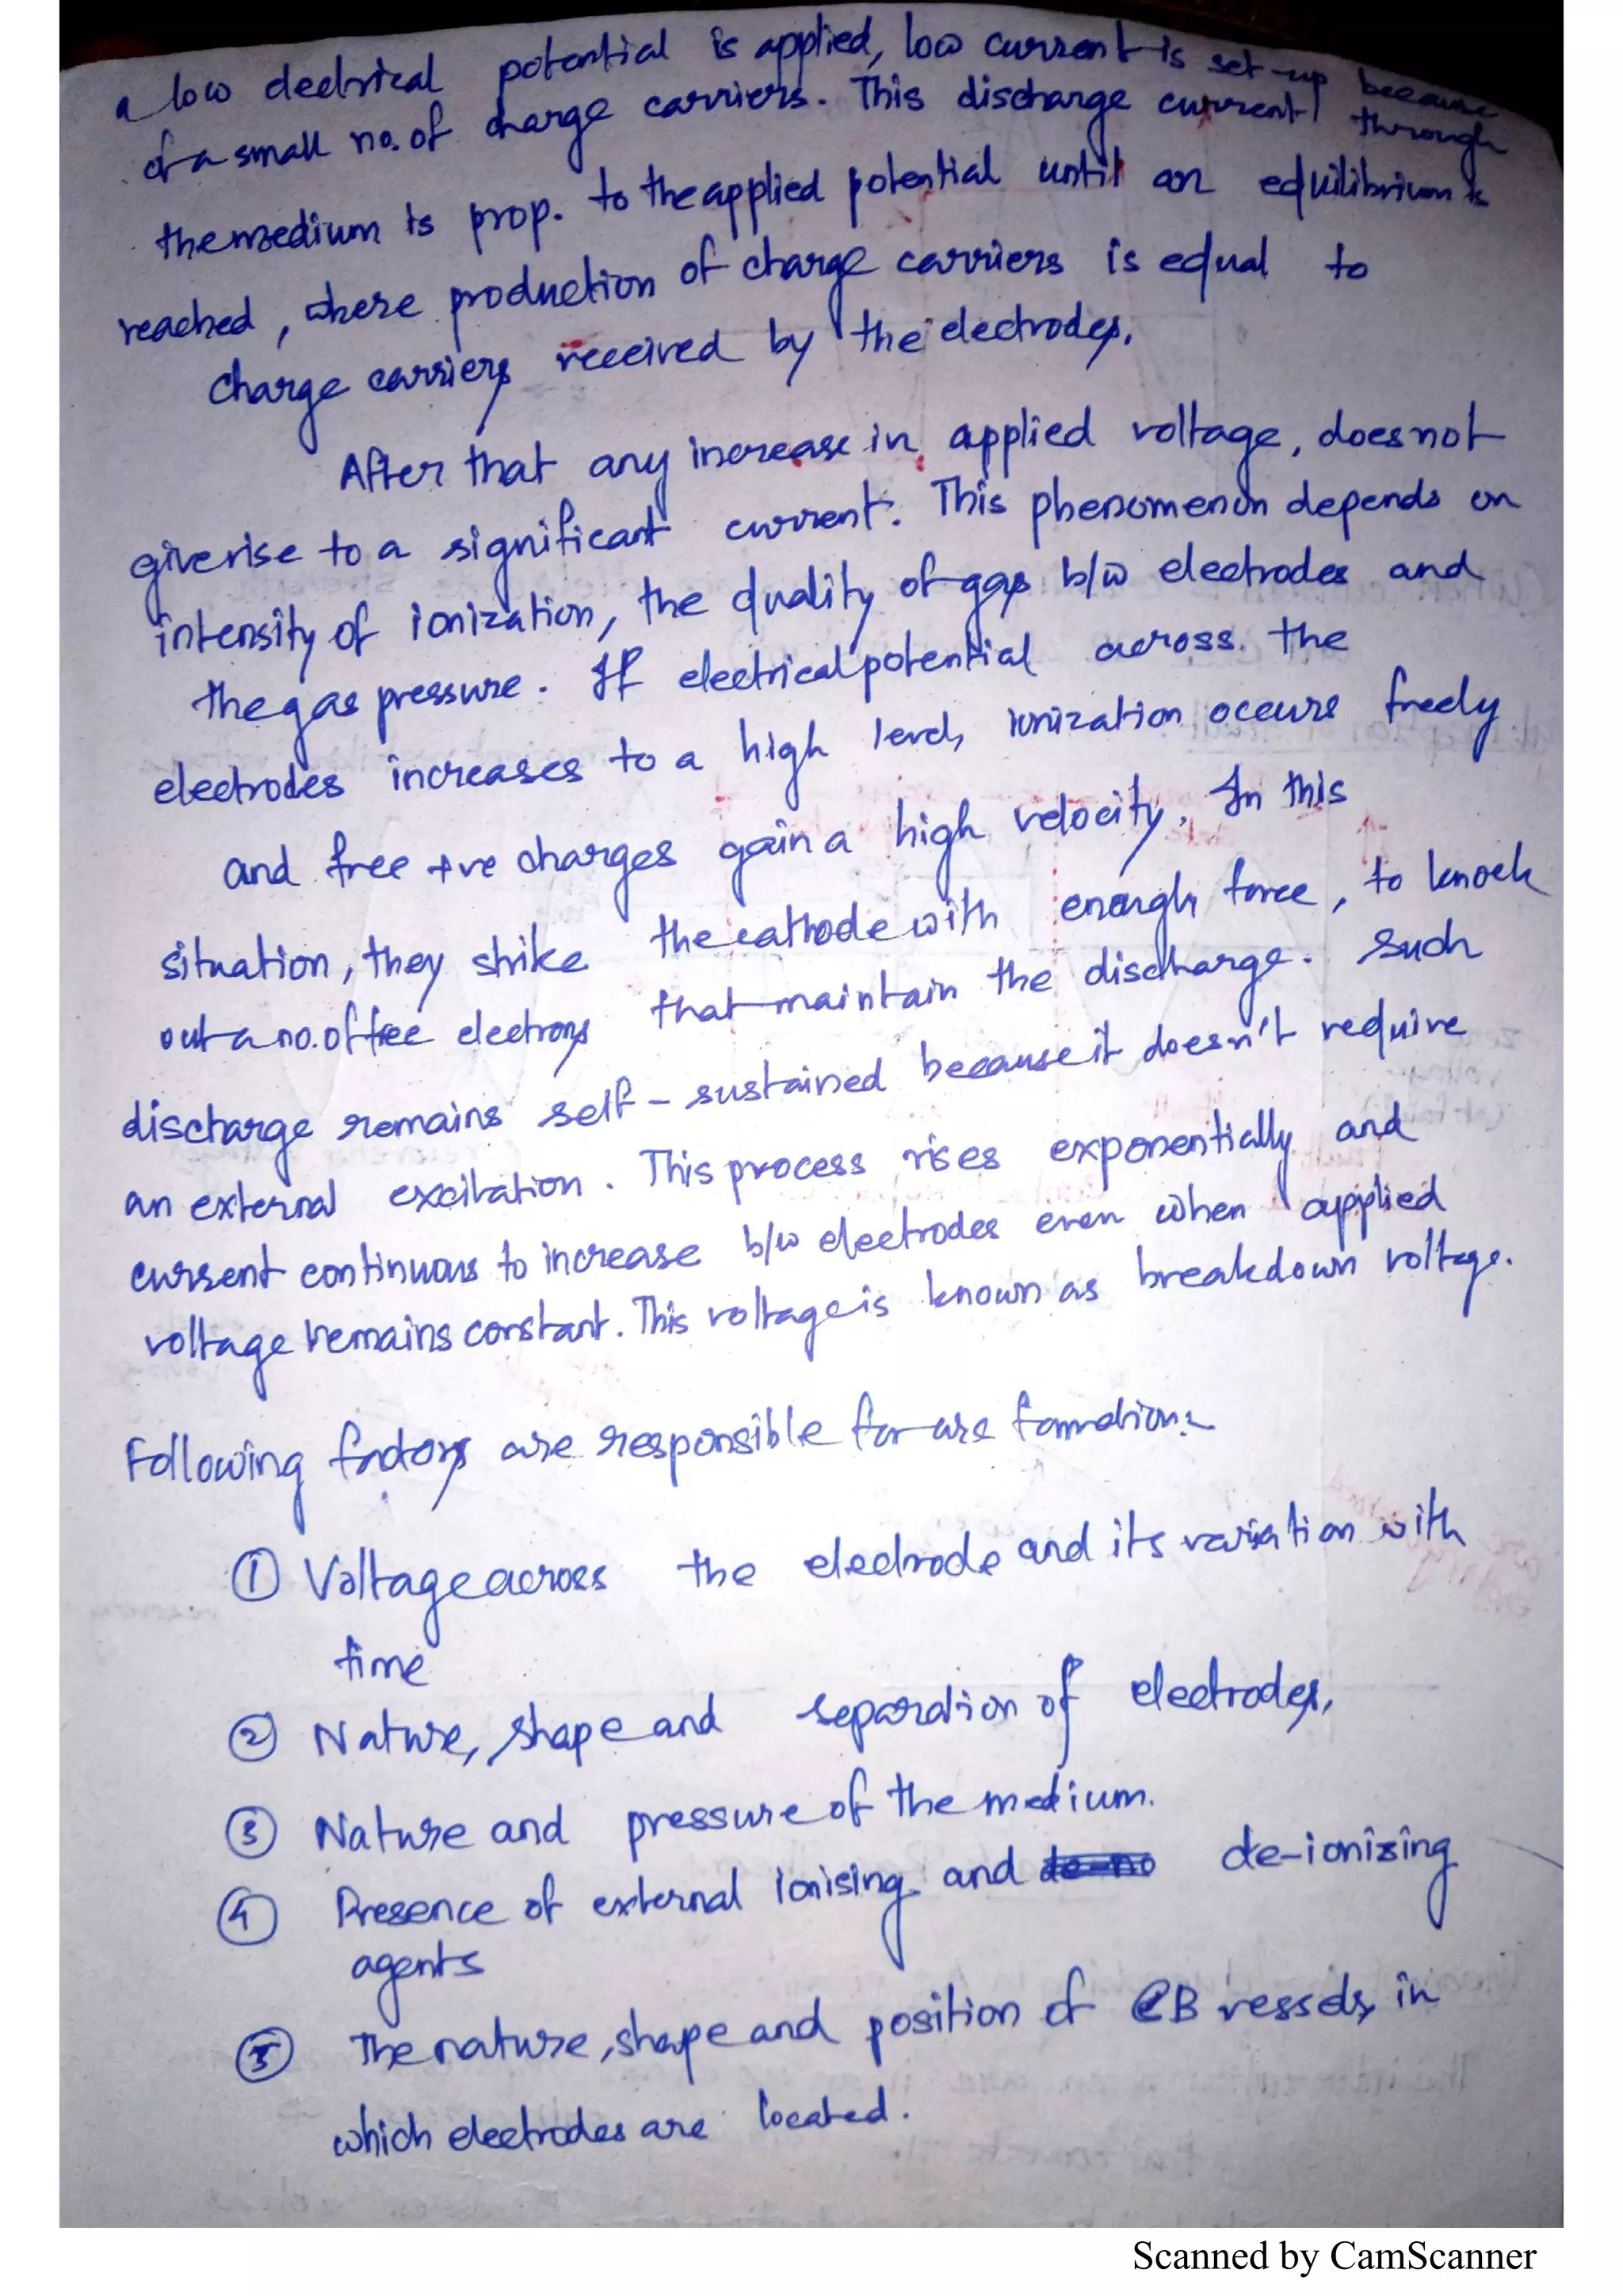 a low electrical potential is applied, low current is set-up because
of a small no. of charge carriers. This discharge current through
the medium is prop. to the applied potential until an equilibrium is
reached, where production of charge carriers is equal to
charge carriers received by the electrodes.
After that any increase in applied voltage, does not
give rise to a significant current. This phenomenon depends on
intensity of ionization, the quality of gas b/w electrodes and
the gas pressure. If electrical potential across the
electrodes increases to a high level, ionization occurs freely
and free +ve charges gain a high velocity. In this
situation, they strike the cathode with enough force, to knock
out a no. of free electrons that maintain the discharge. Such
discharge remains self-sustained because it doesn't require
an external excitation. This process rises exponentially and
current continuous to increase b/w electrodes even when applied
voltage remains constant. This voltage is known as breakdown voltage.
Following factors are responsible for arc formation:
① Voltage across the electrode and its variation with
time
② Nature, shape and separation of electrodes,
③ Nature and pressure of the medium.
④ Presence of external ionising and de-ionizing
agents
⑤ The nature, shape and position of CB vessels, in
which electrodes are located.
Scanned by CamScanner